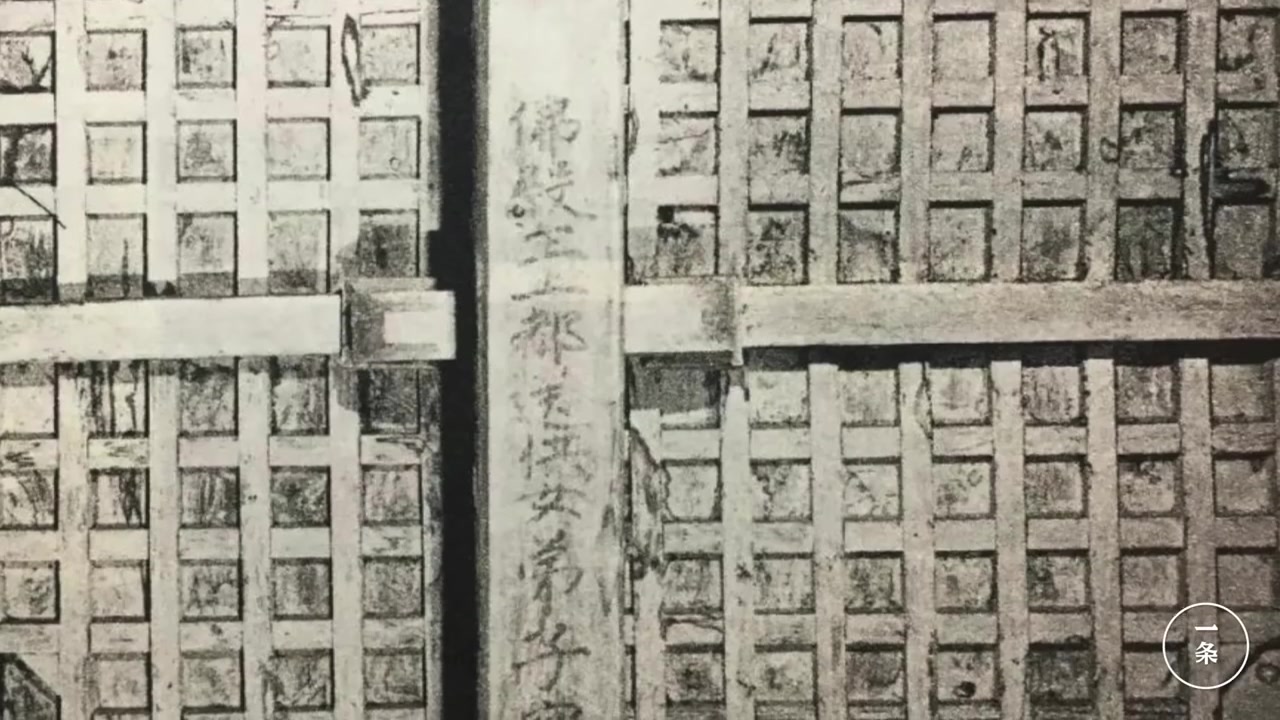 佛殿主上都送供女弟子寧
一条